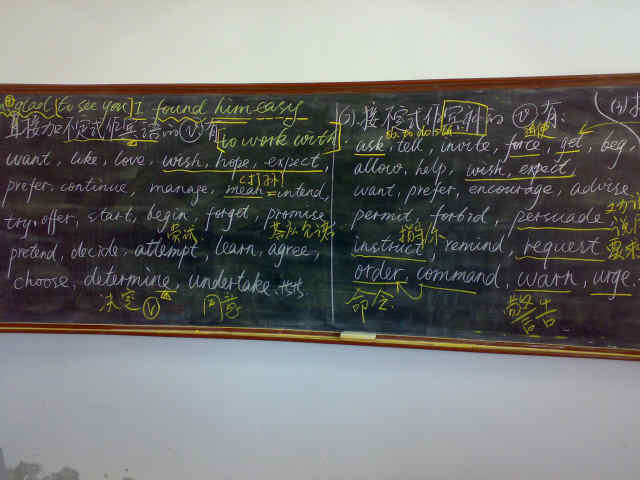 glad [to see you] I found him easy
直接加不定式作宾语的 V 有
to work with
want, like, love, wish, hope, expect,
打补
prefer, continue, manage, mean = intend,
try, offer, start, begin, forget, promise
尝试
pretend, decide, attempt, learn, agree,
choose, determine, undertake.
决定 V 同意
接不定式作宾补的 V 有:
ask, tell, invite, force, get, beg,
allow, help, wish, expect
want, prefer, encourage, advise
permit, forbid, persuade
instruct, remind, request 要求
order, command, warn, urge.
命令 警告